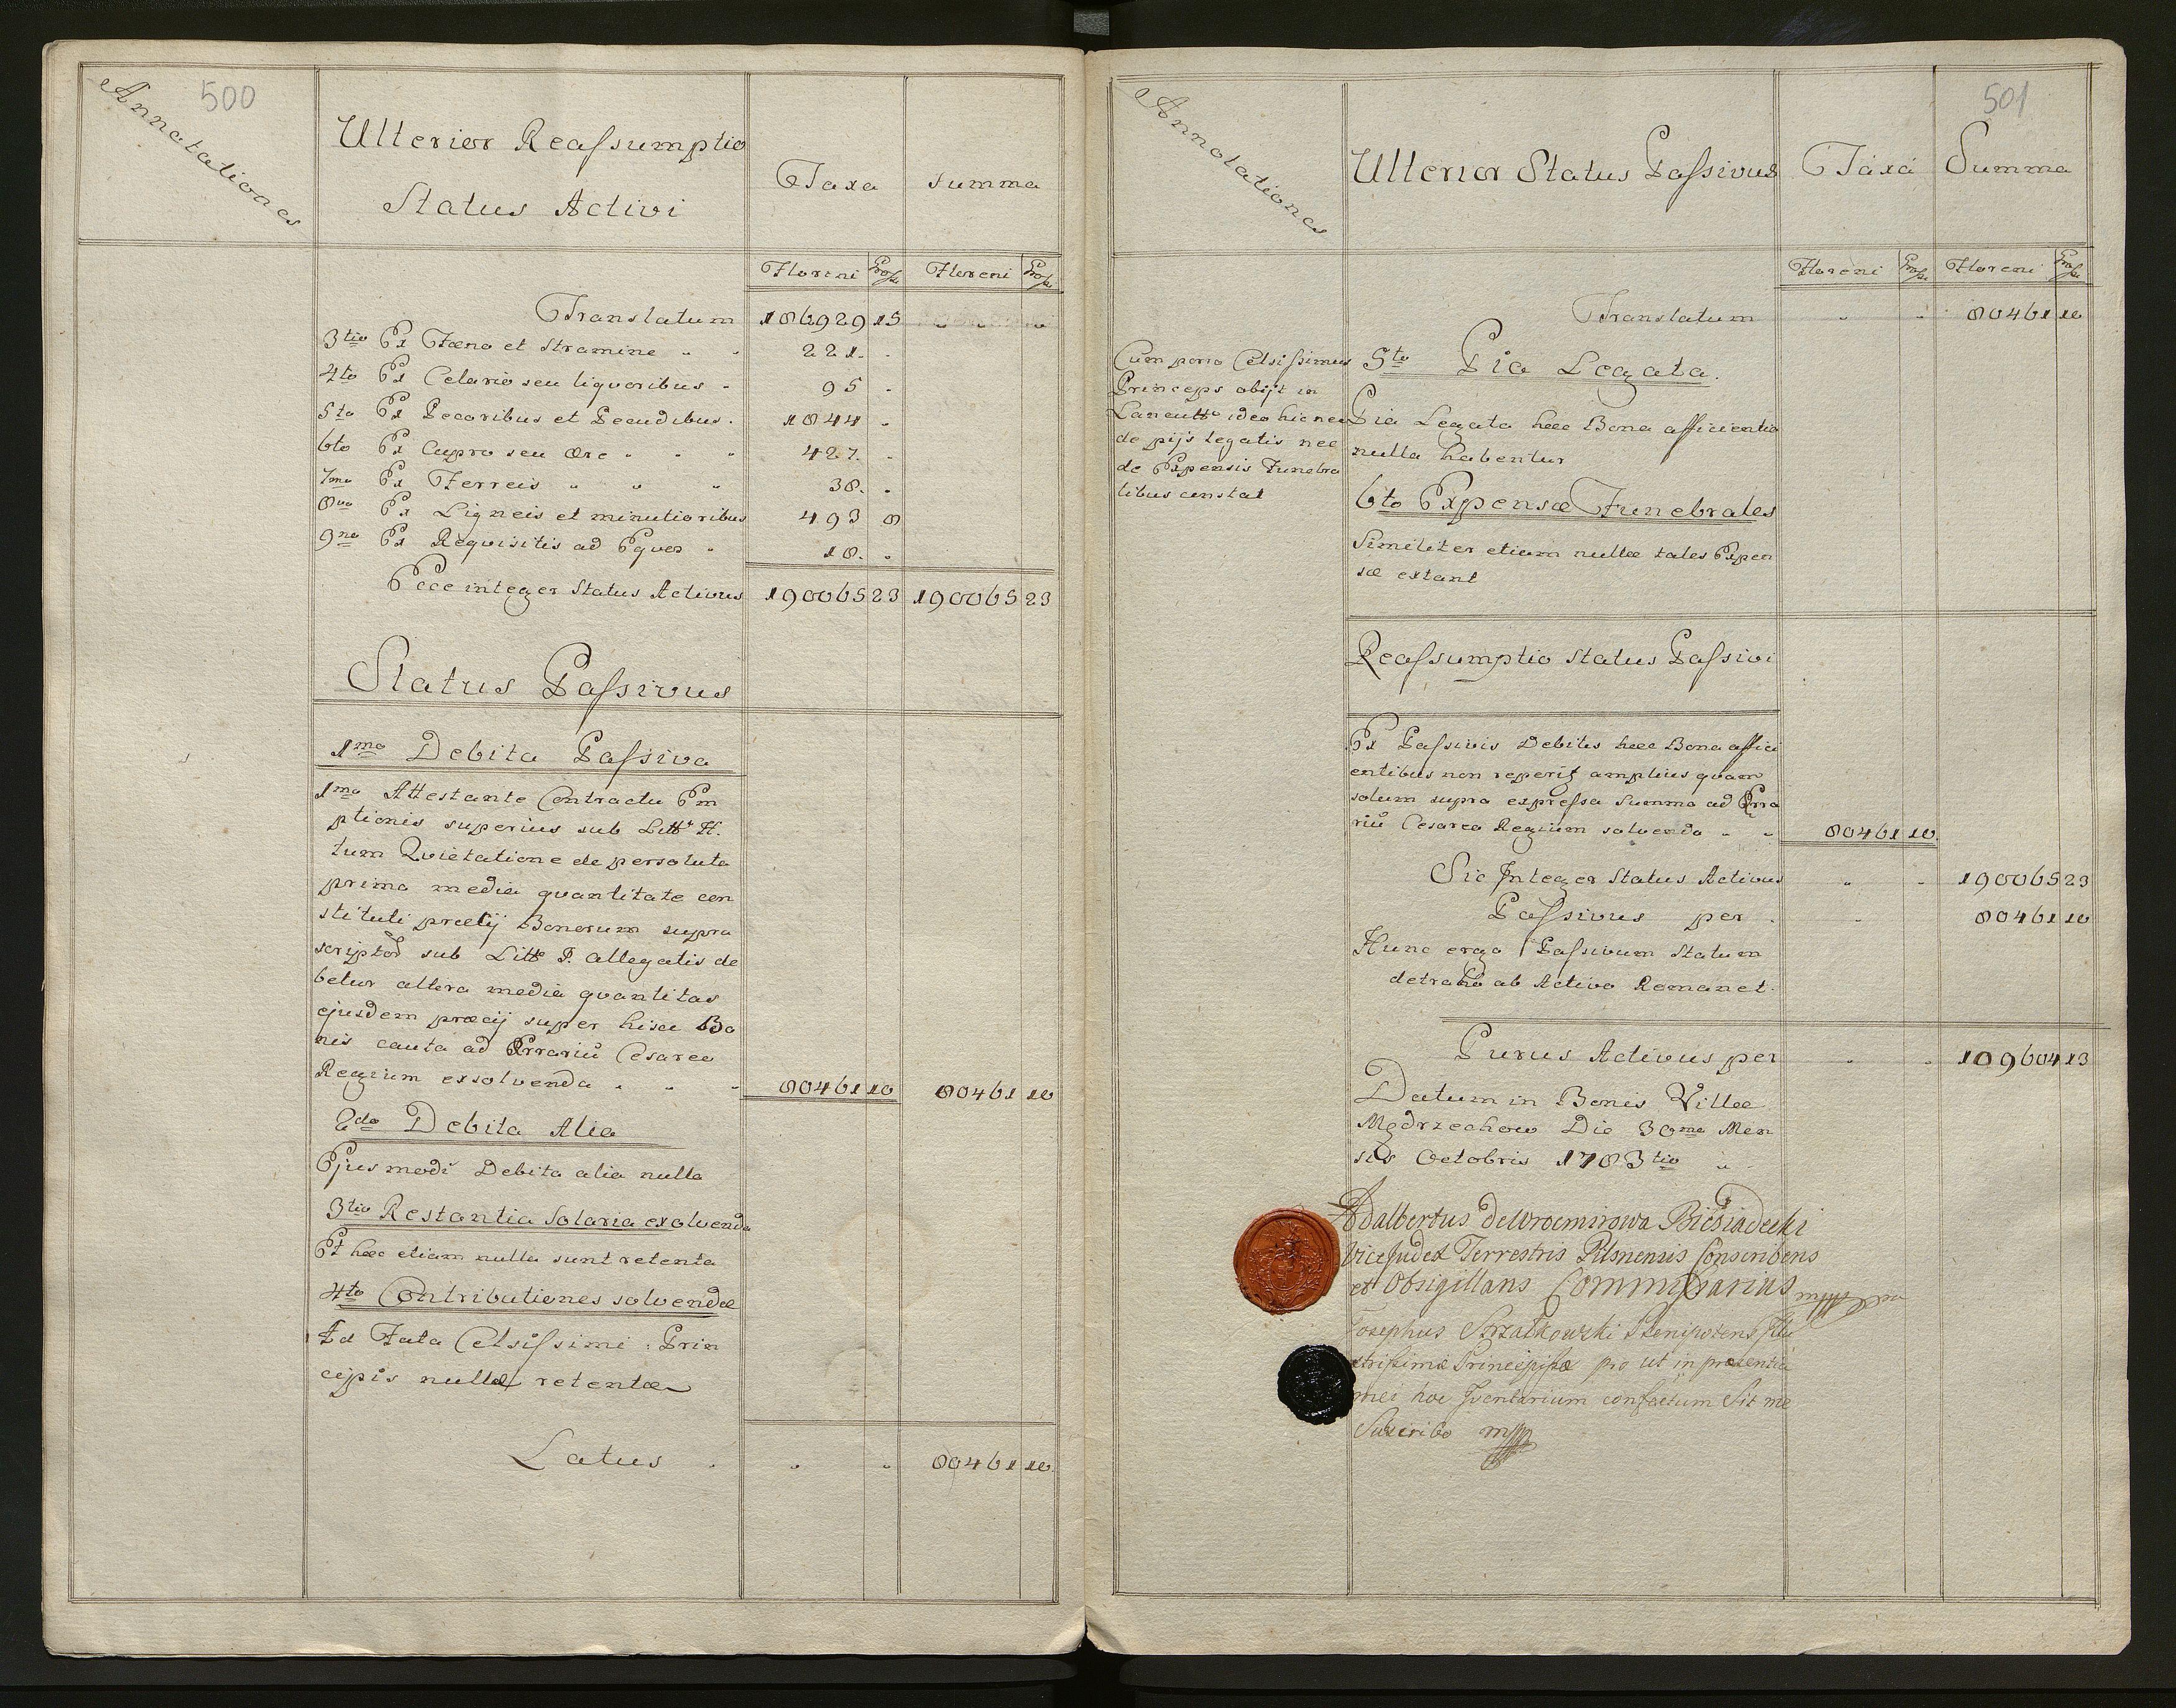 500
Annotationes
Ulterior Reassumptio
Status Activi
Taxa
Summa
Floreni Grossi Floreni Grossi
Translatum 186929 15
3tio Ex Fæno et Stramine 221.
4to Ex Celario seu liquoribus 95
5to Ex Pecoribus et Pecudibus. 1844
6to Ex Cupro seu ære 427.
7mo Ex Ferreis 38.
8vo Ex Ligneis et minutioribus 493 8
9no Ex Requisitis ad Equos 18.
Ecce integer Status Activus 190065 23 190065 23
Status Passivus
1mo Debita Passiva
1mo Attestante Contractu Em
ptionis superius sub Litt. H.
tum Quietatione de persoluta
prima media quantitate con
stituti pretij Bonorum supra
script sub Litt P. allegatis de
betur altera media quantitas
ejusdem præcij super hisce Bo
nis cauta ad Ærrariũ Cesareo
Regium exsolvenda 80461 10 80461 10
2do Debita Alia
Ejusmodi Debita alia nulla
3tio Restantia Solaria exolvenda
Et hæc etiam nulla sunt retenta
4to Contributiones solvendæ
Ad Fata Celsissimi Prin
cipis nullæ retentæ
Latus 80461 10.
501
Annotationes
Ulterior Status Passivus
Taxa
Summa
Floreni Grossi Floreni Grossi
Translatum 80461 10
Cum porro Celsissimus
Princeps obijt in
Lancutt ideo hic nec
de pijs legatis nec
de Expensis Funebra
libus constat
5to Pia Legata.
Pia Legata hæc Bona afficientia
nulla habentur
6to Expensæ Funebrales
Similiter etiam nullæ tales Expen
sæ extant
Reassumptio Status Passivi
Ex Passivis Debitis hæc Bona affici
entibus non reperit amplius quam
solum supra expressa Summa ad Ærra
riũ Cesareo Regium solvenda 80461 10.
Sic Integer Status Activus 190065 23
Passivus per 80461 10
Hunc ergo Passivum Statum
detraho ab Activo Remanet.
Purus Activus per 109604 13
Datum in Bonis Villæ
Mędrzechow Die 30ma Men
sis Octobris 1783tio
Adalbertus de Wrocmirowa Biesiadecki
ViceJudex Terrestris Pilsnensis Conscribens
et Obsigillans Commissarius mppa
Josephus Strzałkowski Plenipotens Illu
strissimæ Principissæ pro ut in præsentia
mei hoc Iventarium confectum Sit me
Subscribo mppa